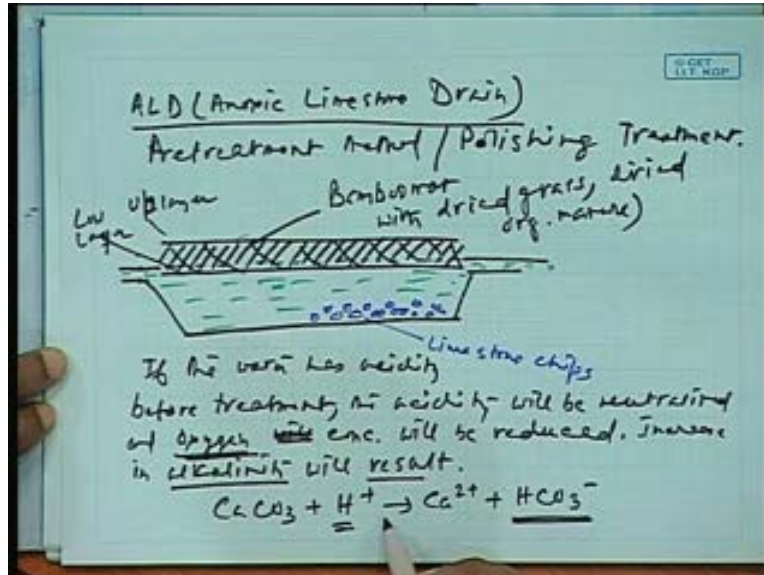 © CET
I.I.T. KGP
ALD (Anoxic Limestone Drain)
Pretreatment Method / Polishing Treatment.
Low Layer
Up Layer
Bamboo mat
with dried grass, dried
org. manure)
Limestone chips
If the water has acidity
before treatment, the acidity will be neutralized
and Oxygen conc. will be reduced. Increase
in alkalinity will result.
CaCO3 + H+ → Ca2+ + HCO3-